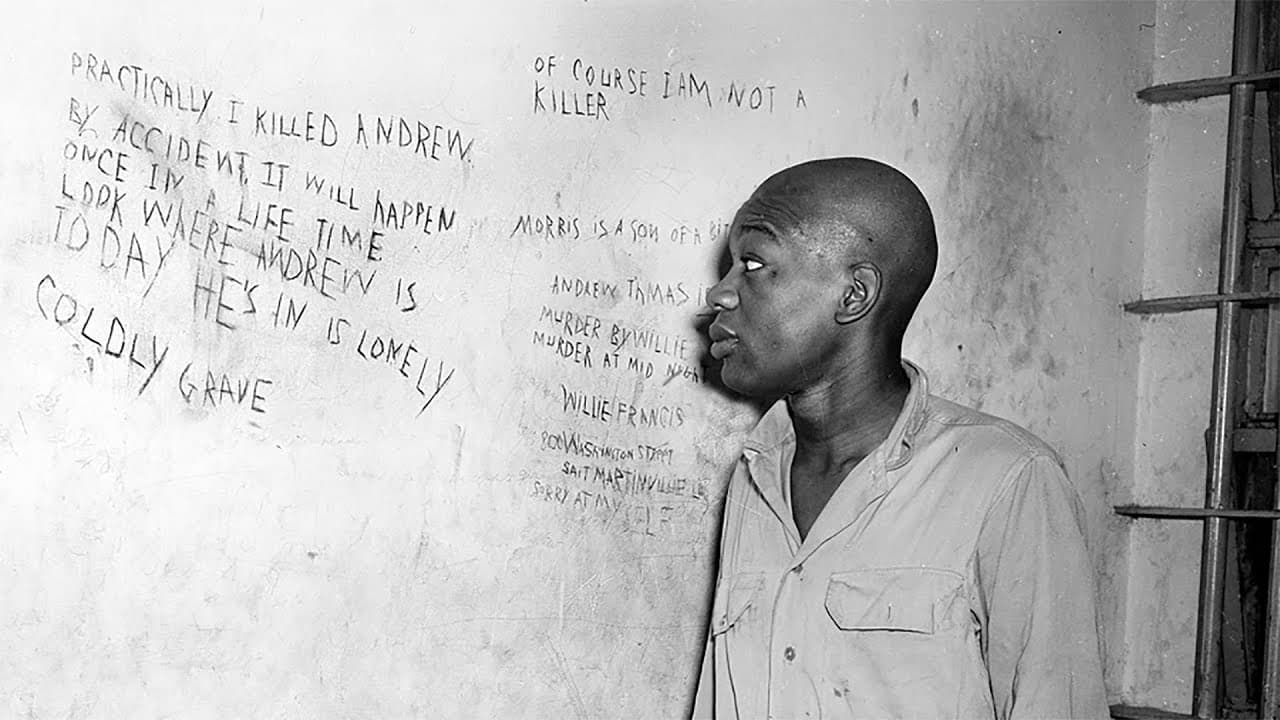 PRACTICALLY I KILLED ANDREW
BY ACCIDENT IT WILL HAPPEN
ONCE IN A LIFE TIME
LOOK WHERE ANDREW IS
TODAY HE'S IN IS LONELY
COLDLY GRAVE
OF COURSE I AM NOT A
KILLER
MORRIS IS A SON OF A BIT
ANDREW THMAS
MURDER BY WILLIE
MURDER AT MID NIGHT
WILLIE FRANCIS
800 WASHINGTON STREET
SAIT MARTINVILLE LA
SORRY AT MY SELF